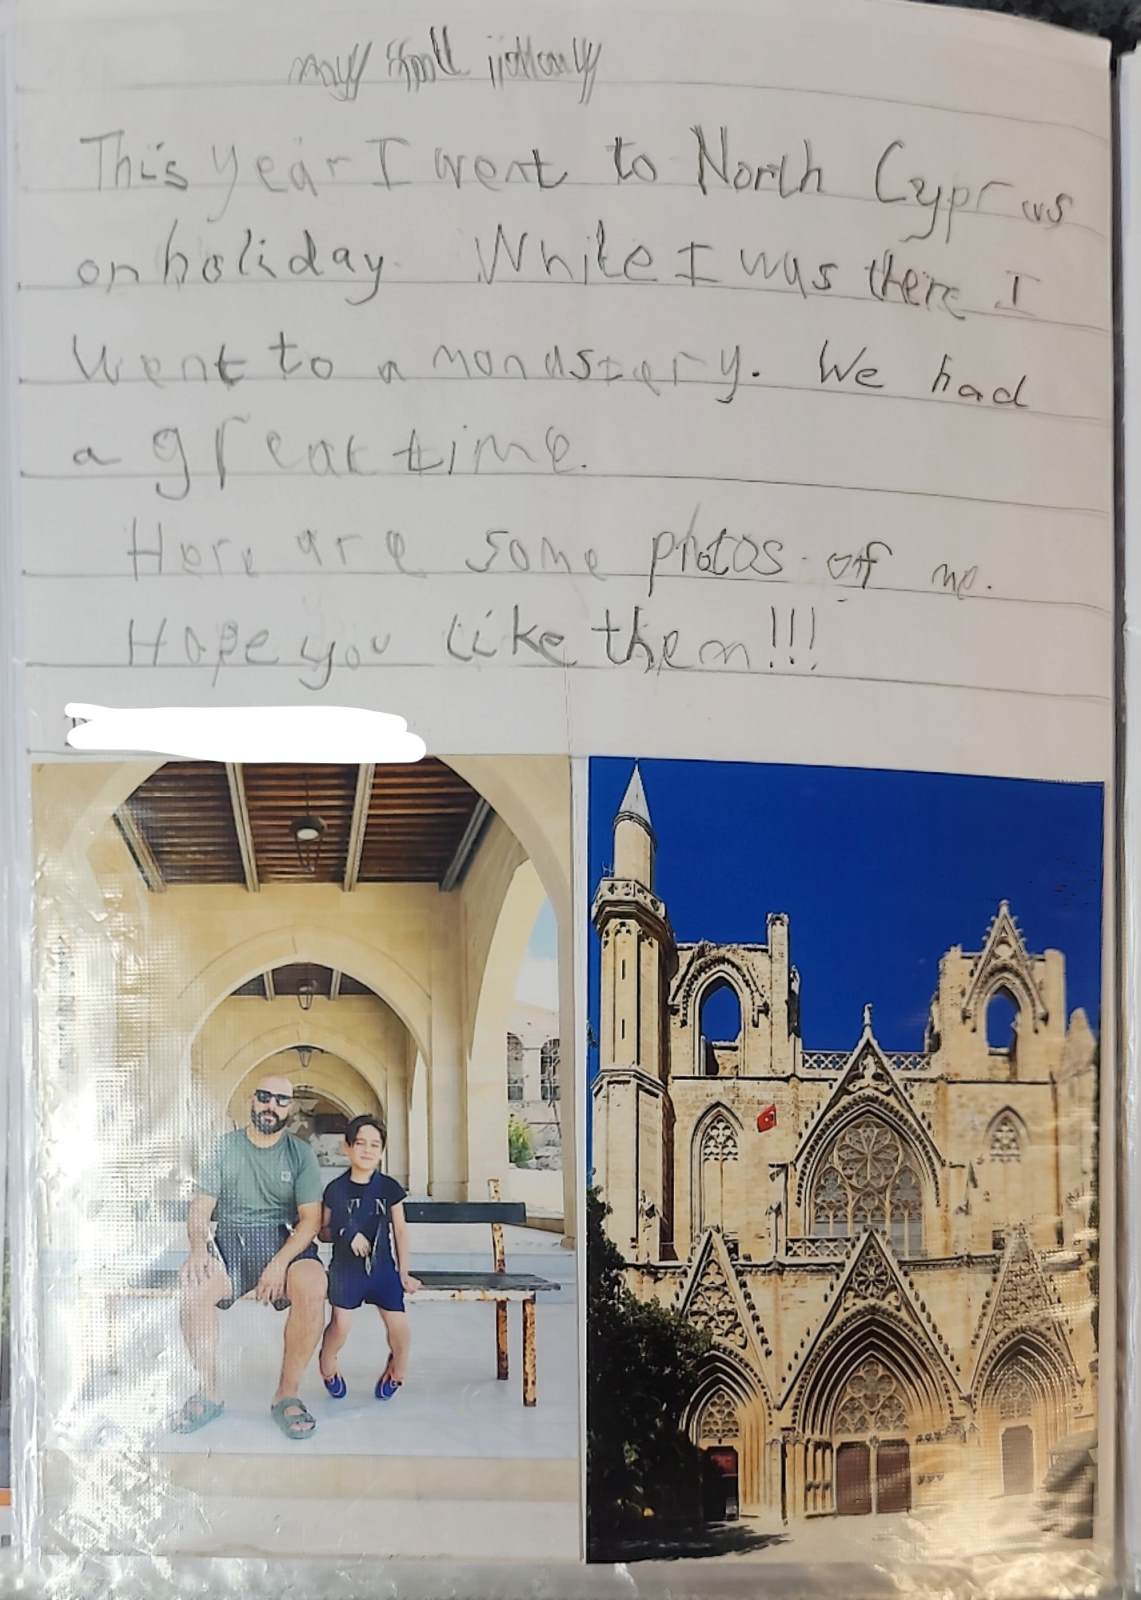 This year I went to North Cyprus
on holiday. While I was there I
went to a monastery. We had
a great time.
Here are some photos of me.
Hope you like them!!!